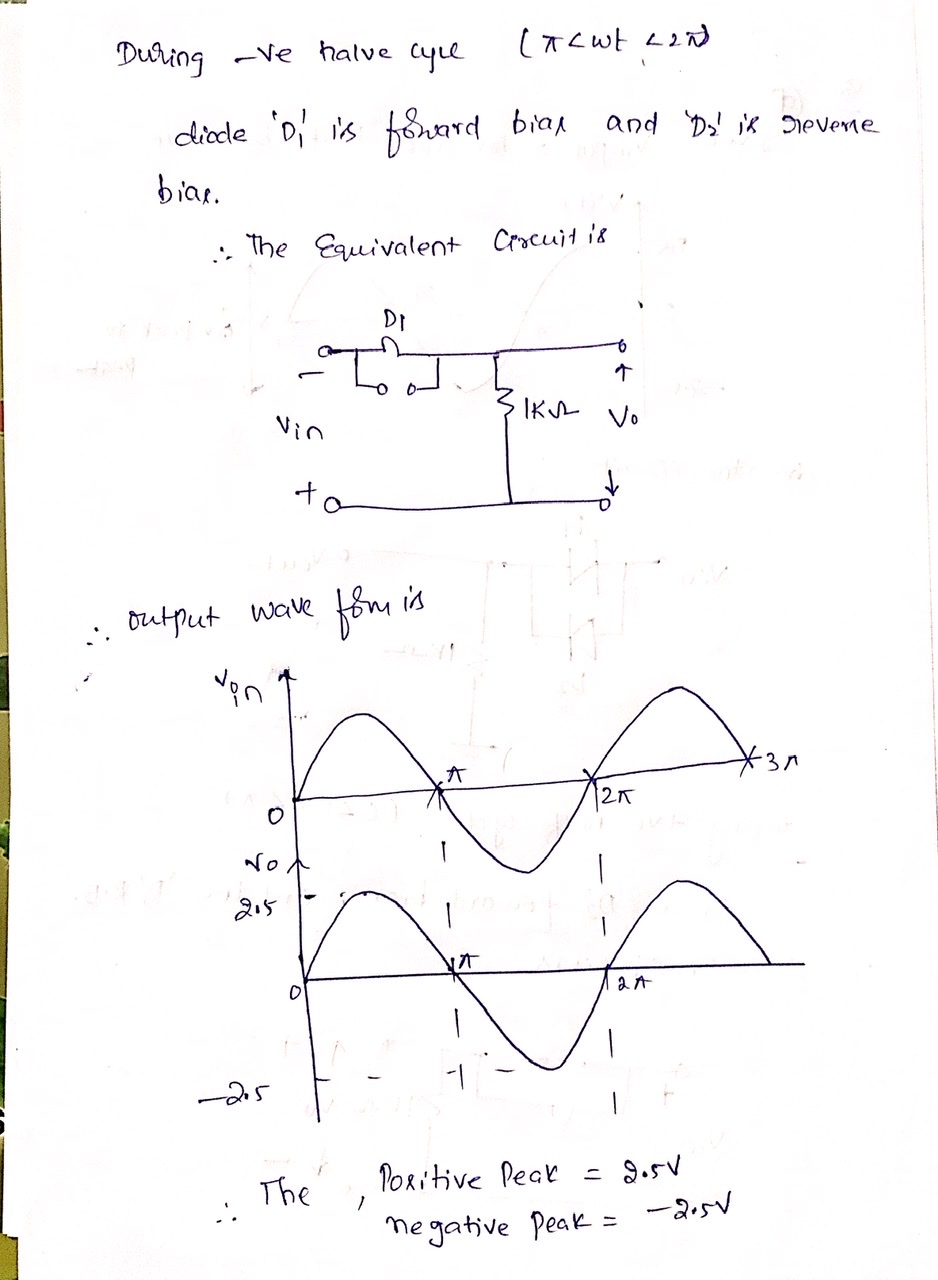 During -ve halve cycle (π<wt <2π)
diode 'D1' is forward bias and 'D2' is reverse
bias.
∴ The Equivalent Circuit is
D1
-
Vin
1KΩ
Vo
+
∴ output wave form is
Vin
0
π
2π
3π
Vo
2.5
0
π
2π
-2.5
∴ The , Positive Peak = 2.5V
negative Peak = -2.5V